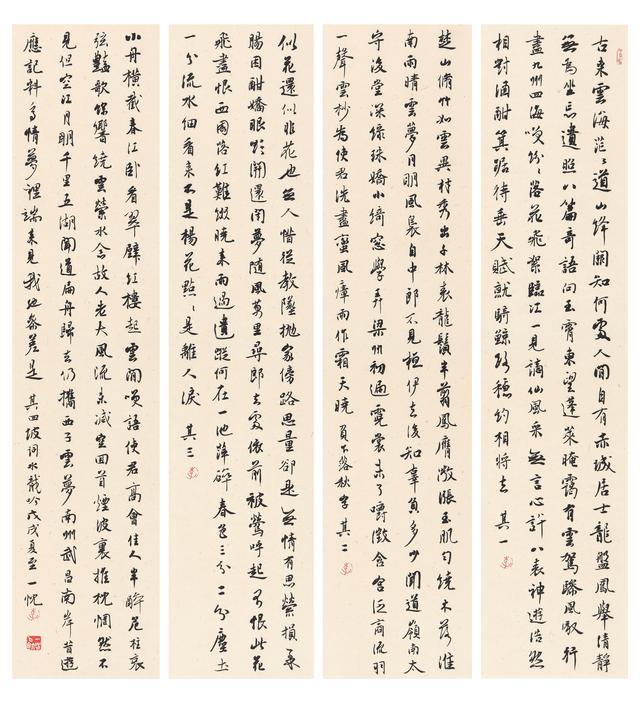 古來雲海茫茫道山絳闕知何處人間自有赤城居士龍盤鳳舉清靜
無為坐忘遺照八篇奇語向玉霄東望蓬萊晻靄有雲駕驂風馭行
盡九州四海笑紛紛落花飛絮臨江一見謫仙風采無言心許八表神遊浩然
相對酒酣箕踞待垂天賦就騎鯨路穩約相將去 其一
楚山脩竹如雲異材秀出千林表龍鬚半翦鳳膺微漲玉肌勻繞木落淮
南雨晴雲夢月明風裊自中郎不見桓伊去後知辜負多少聞道嶺南太
守後堂深綠珠嬌小綺窓學弄梁州初遍霓裳未了嚼徵含宮泛商流羽
一聲雲杪為使君洗盡蠻風瘴雨作霜天曉 落秋字 其二
似花還似非花也無人惜從教墜拋家傍路思量卻是無情有思縈損柔
腸困酣嬌眼欲開還閉夢隨風萬里尋郎去處依前被鶯呼起不恨此花
飛盡恨西園落紅難綴曉來雨過遺蹤何在一池萍碎春色三分二分塵土
一分流水細看來不是楊花點點是離人淚 其三
小舟橫截春江臥看翠壁紅樓起雲間笑語使君高會佳人半醉危柱哀
弦豔歌餘響繞雲縈水念故人老大風流未減空回首煙波裏推枕惘然不
見但空江月明千里五湖聞道扁舟歸去仍攜西子雲夢南州武昌南岸昔遊
應記料多情夢裡端來見我也參差是 其四坡詞水龍吟戊戌夏至一忱